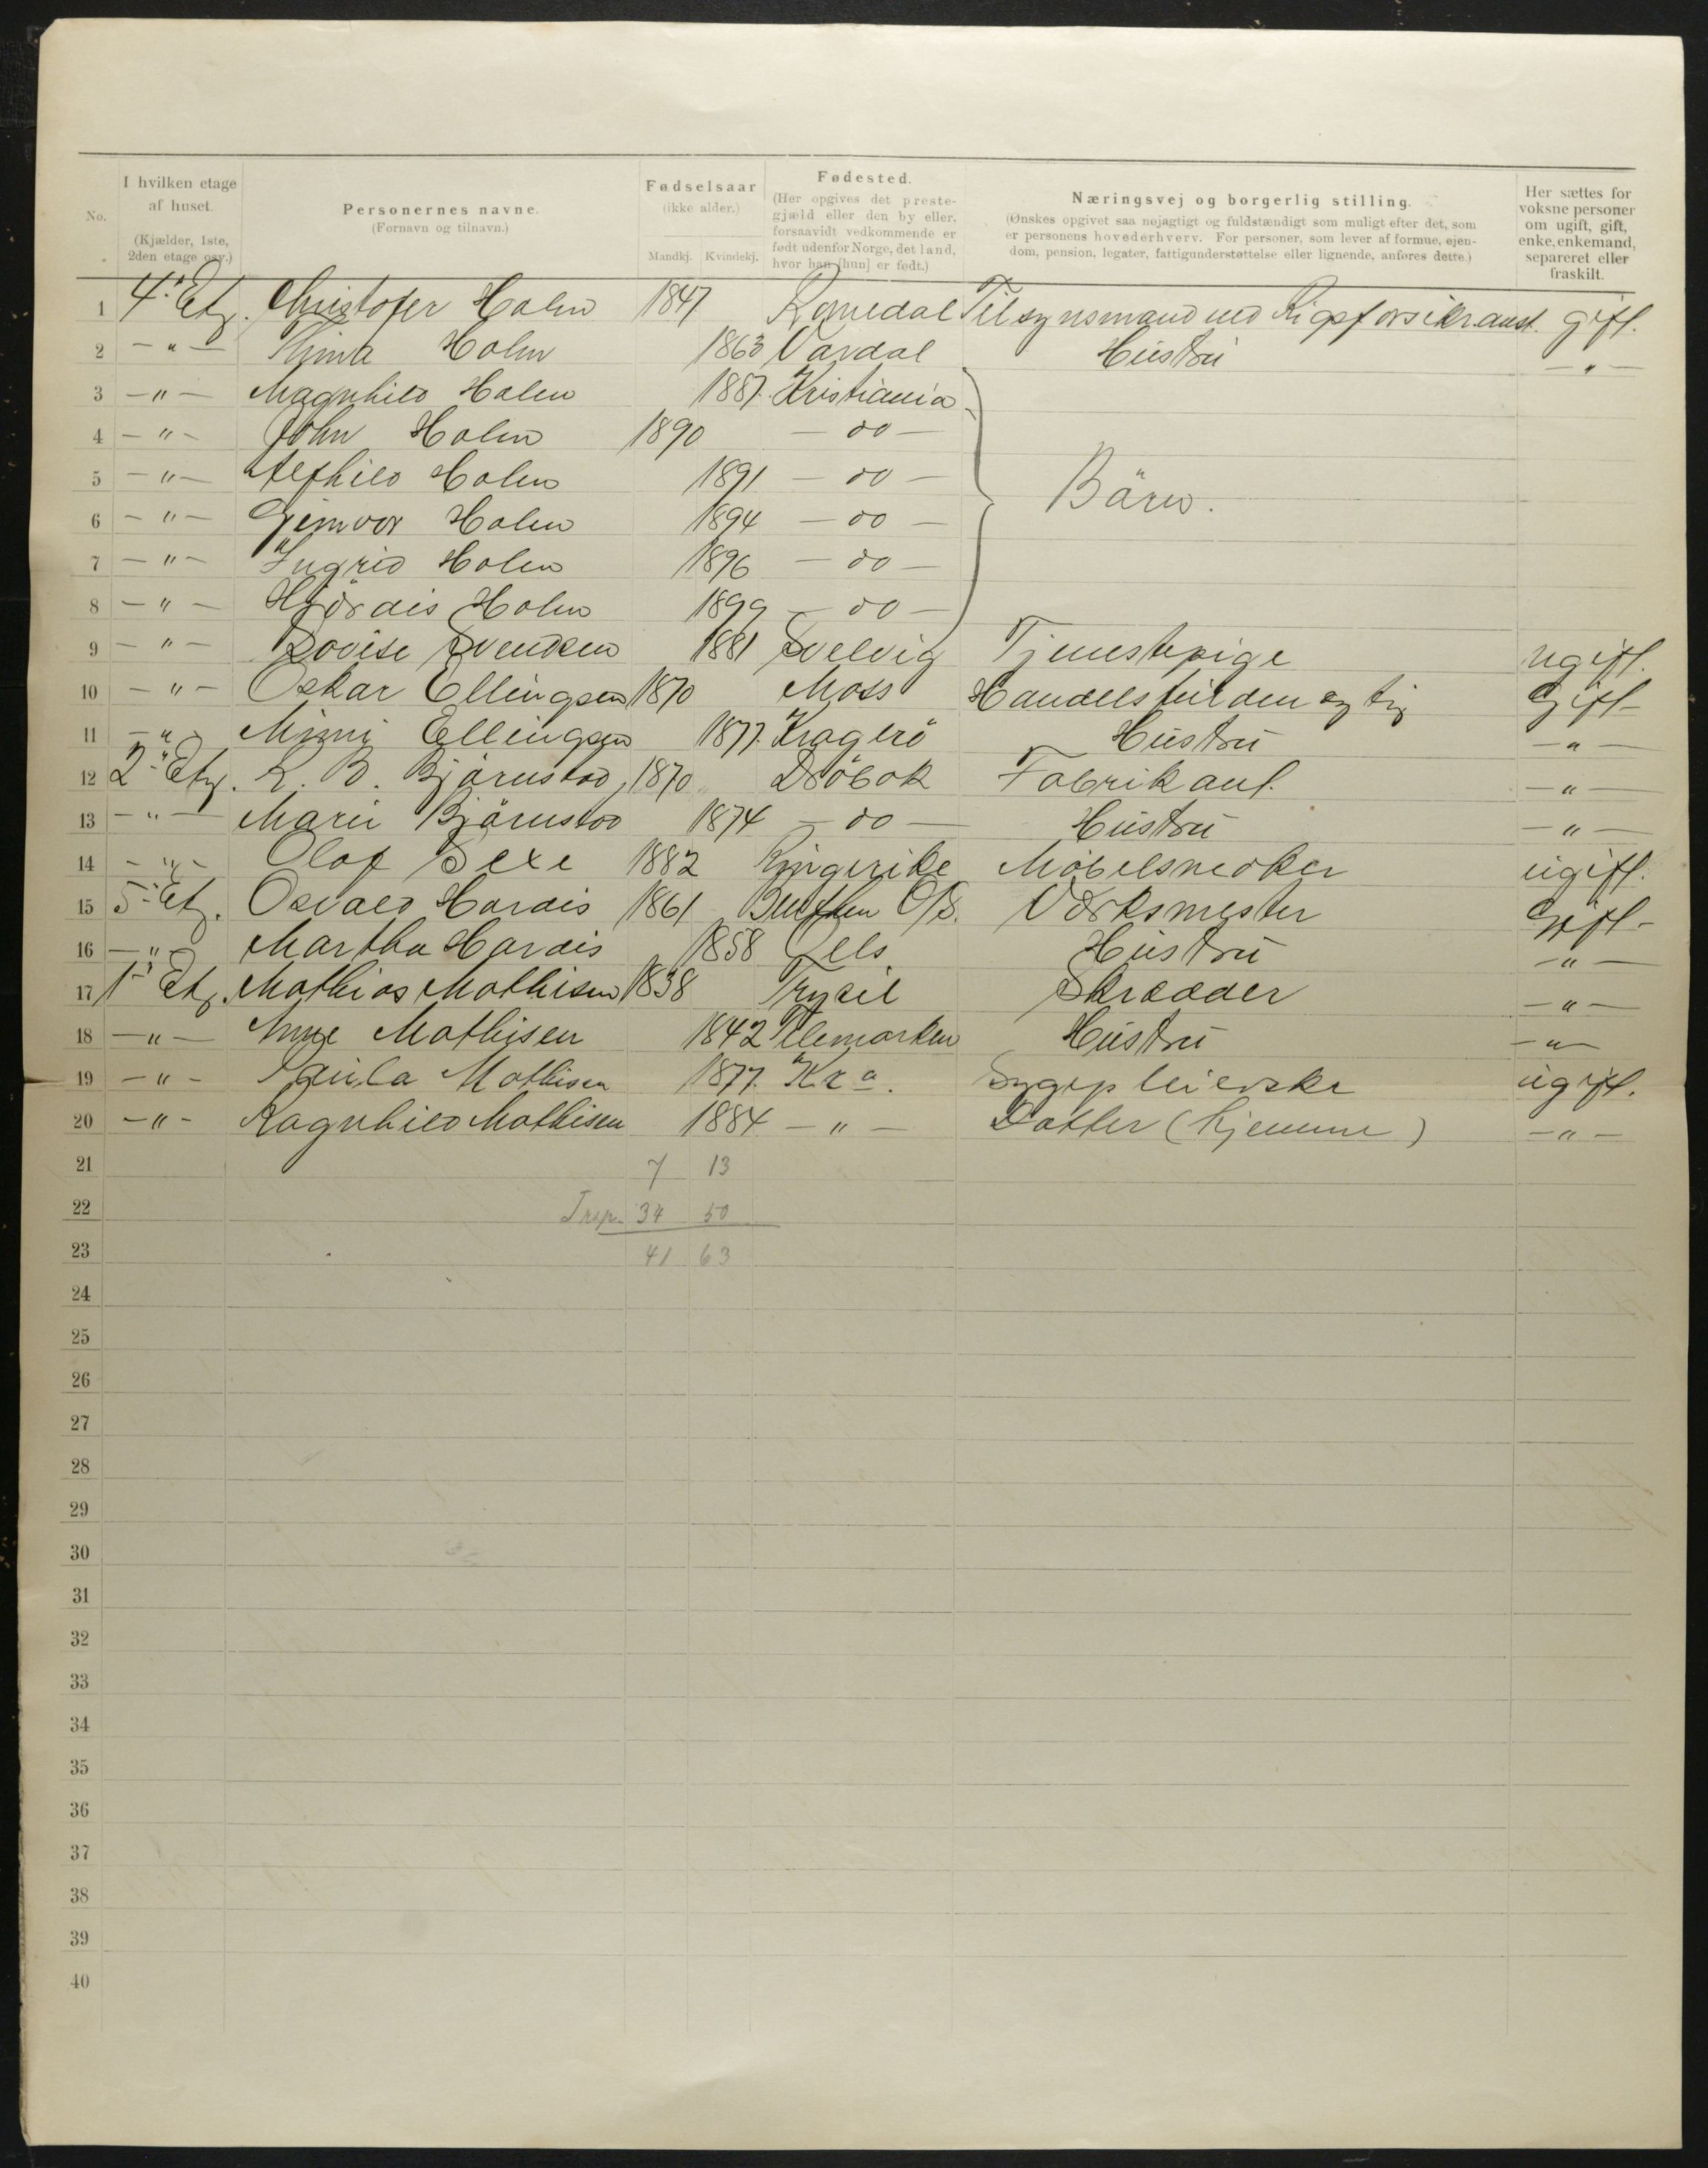 No.
I hvilken etage af huset. (Kjælder, 1ste, 2den etage osv.)
Personernes navne. (Fornavn og tilnavn.)
Fødselsaar (ikke alder.) Mandkj. Kvindekj.
Fødested. (Her opgives det prestegjæld eller den by eller, forsaavidt vedkommende er født udenfor Norge, det land, hvor han [hun] er født.)
Næringsvej og borgerlig stilling. (Ønskes opgivet saa nøjagtigt og fuldstændigt som muligt efter det, som er personens hovederhverv. For personer, som lever af formue, ejendom, pension, legater, fattigunderstøttelse eller lignende, anføres dette.)
Her sættes for voksne personer om ugift, gift, enke, enkemand, separeret eller fraskilt.
1 4. Etg. Christofer Holm 1847 Romedal Tilsynsmand ved Rigsforsikr.anst. gift.
2 — " — Holm 1863 Vardal Hustru — " —
3 — " — Magnhild Holm 1887. Kristiania
4 — " — John Holm 1890 — do —
5 — " — Alfhild Holm 1891 — do — Börn.
6 — " — Gjmvor Holm 1894 — do —
7 — " — Ingrid Holm 1896 — do —
8 — " — Hjørdis Holm 1899 — do —
9 — " — Lovise Svendsen 1881 Svelvig Tjenestepige ugift.
10 — " — Oskar Ellingsen 1870 Moss Gift —
11 — " — Minni Ellingsen 1877. Kragerö Hustru — " —
12 2. Etg. K. B. Björnstad 1870 Dröbak Fabrikant. — " —
13 — " — Marie Björnstad 1874 — do — Hustru — " —
14 — " — Olaf Sexe 1882 Ringerike Möbelsnedker ugift.
15 5. Etg. Osvald Hardis 1861 Beuthen O/S. Værksmester Gift —
16 — " Martha Hardis 1858 Oels Hustru — " —
17 1. Etg. Mathias Mathisen 1838 Trysil Skrædder — " —
18 — " — Anne Mathisen 1842 Telemarken Hustru — " —
19 — " — Paula Mathisen 1877. Kra. Sygepleierske ugift.
20 — " — Ragnhild Mathisen 1884 — " — Datter (hjemme) — " —
21 7 13
22 Trsp. 34 50
23 41 63
24
25
26
27
28
29
30
31
32
33
34
35
36
37
38
39
40